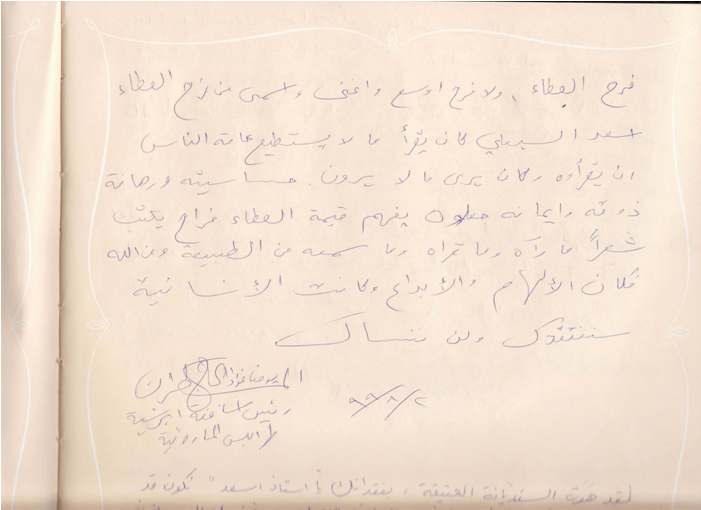 فرح العطاء، ولا فرح اوسع واغنى واسمى من فرح العطاء
اسعد السبعلي كان يقرأ ما لا يستطيع عامة الناس
ان يقرأوه وكان يرى ما لا يرون. حساسيته ورهافة
ذوقه وايمانه جعلاه يفهم قيمة العطاء فراح يكتب
شعراً ما رآه وما قرأه وما سمعه من الطبيعة ومن الله
فكان الألهام والأبداع وكانت الأنسانية
سنفتقدك ولن ننساك
رئيس اساقفة ابرشية
طرابلس المارونية
٩٩/٨/٢
لقد هَوَت السنديانة العتيقة، بفقدانك يا استاذ اسعد" تكون قد